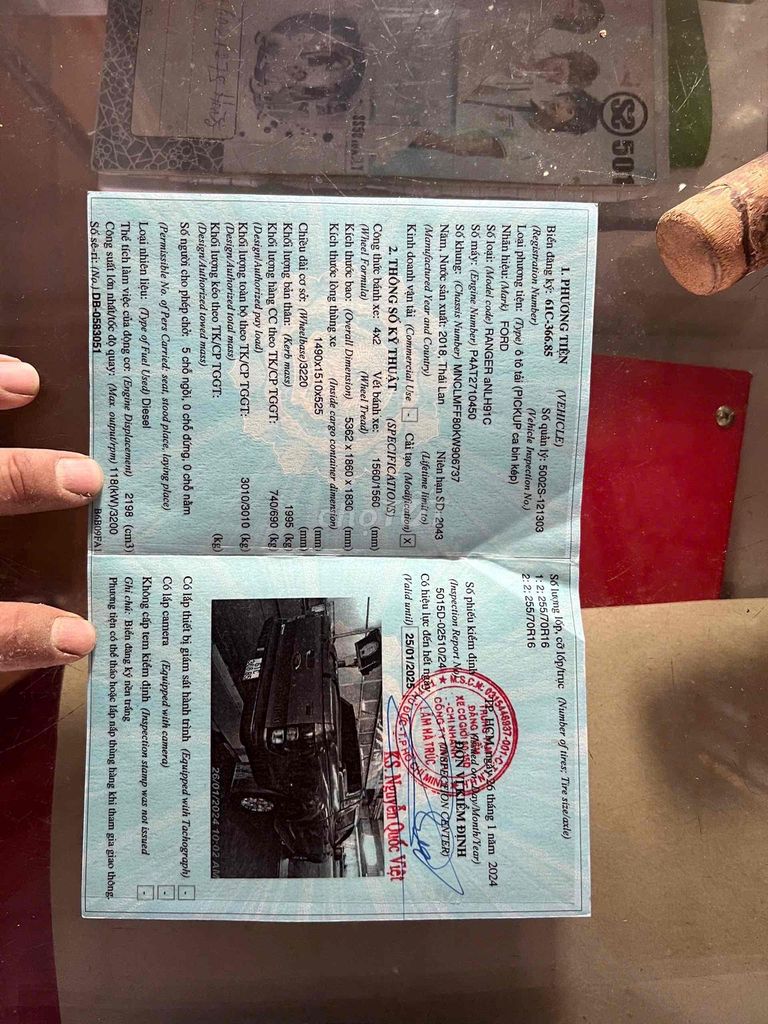 1. PHƯƠNG TIỆN (VEHICLE)
Biển đăng ký: 61C-366.85 Số quản lý: 5002S-121303
(Registration Number) (Vehicle Inspection No.)
Loại phương tiện: (Type) ô tô tải (PICKUP ca bin kép)
Nhãn hiệu: (Mark) FORD
Số loại: (Model code) RANGER aNLH91C
Số máy: (Engine Number) P4AT2710450
Số khung: (Chassis Number) MNCLMFF80KW906737
Năm, Nước sản xuất: 2018, Thái Lan Niên hạn SD: 2043
(Manufactured Year and Country) (Lifetime limit to)
Kinh doanh vận tải (Commercial Use) - Cải tạo (Modification) X
2. THÔNG SỐ KỸ THUẬT (SPECIFICATIONS)
Công thức bánh xe: 4x2 Vết bánh xe: 1560/1560 (mm)
(Wheel Formula) (Wheel Tread)
Kích thước bao: (Overall Dimension) 5362 x 1860 x 1830 (mm)
Kích thước lòng thùng xe (Inside cargo container dimension)
1490x1510x525 (mm)
Chiều dài cơ sở: (Wheelbase) 3220 (mm)
Khối lượng bản thân: (Kerb mass) 1995 (kg)
Khối lượng hàng CC theo TK/CP TGGT: 740/690 (kg)
(Design/Authorized pay load)
Khối lượng toàn bộ theo TK/CP TGGT: 3010/3010 (kg)
(Design/Authorized total mass)
Khối lượng kéo theo TK/CP TGGT: (kg)
(Design/Authorized towed mass)
Số người cho phép chở: 5 chỗ ngồi, 0 chỗ đứng, 0 chỗ nằm
(Permissible No. of Pers Carried: seat, stood place, laying place)
Loại nhiên liệu: (Type of Fuel Used) Diesel
Thể tích làm việc của động cơ: (Engine Displacement) 2198 (cm3)
Công suất lớn nhất/tốc độ quay: (Max. output/rpm) 118(kW)/3200
Số sê-ri: (No.) DB-0583051 B6B09FA1
Số lượng lốp, cỡ lốp/trục (Number of tires; Tire size/axle)
1: 2; 255/70R16
2: 2; 255/70R16
Số phiếu kiểm định
(Inspection Report N
5015D-02510/24
Có hiệu lực đến hết ngày
(Valid until) 25/01/2025
tháng 1 năm 2024
Day/Month/Year)
ĐƠN VỊ KIỂM ĐỊNH
(INSPECTION CENTER)
LÂM HÀ TRÚC
KS. Nguyễn Quốc Việt
26/01/2024 10:02 AM
Có lắp thiết bị giám sát hành trình (Equipped with Tachograph) -
Có lắp camera (Equipped with camera) -
Không cấp tem kiểm định (Inspection stamp was not issued) -
Ghi chú: Biển đăng ký nền trắng
Phương tiện có thể tháo hoặc lắp nắp thùng hàng khi tham gia giao thông.
501